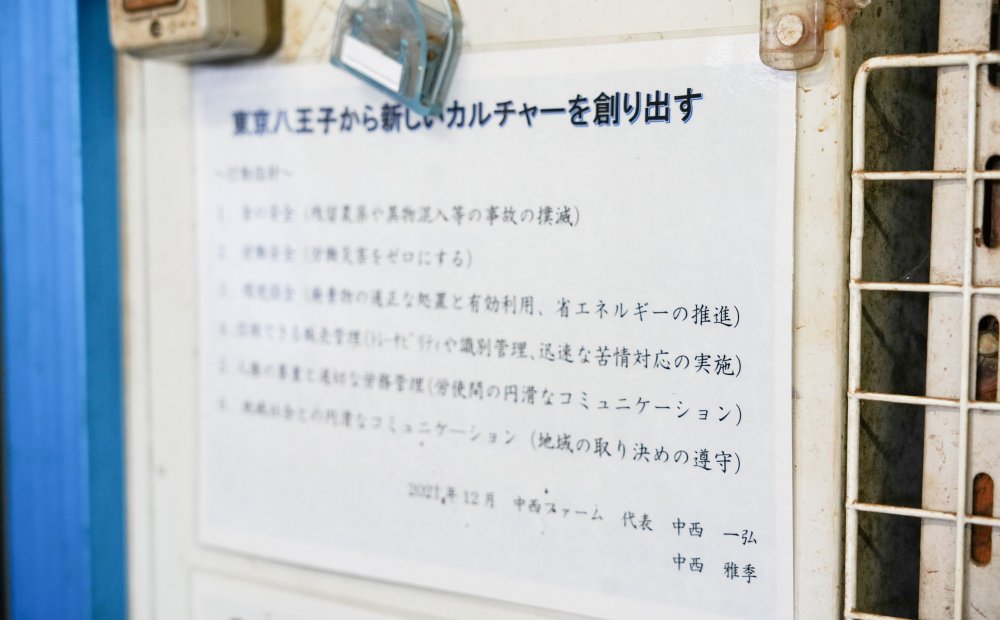 東京八王子から新しいカルチャーを創り出す
～行動指針～
1．食の安全（残留農薬や異物混入等の事故の撲滅）
2．労働安全（労働災害をゼロにする）
3．環境保全（廃棄物の適正な処置と有効利用、省エネルギーの推進）
4．信頼できる販売管理（ﾄﾚｰｻﾋﾞﾘﾃｨや識別管理、迅速な苦情対応の実施）
5．人権の尊重と適切な労務管理（労使間の円滑なコミュニケーション）
6．地域社会との円滑なコミュニケーション（地域の取り決めの遵守）
2021年12月　中西ファーム　代表　中西　一弘
中西　雅季